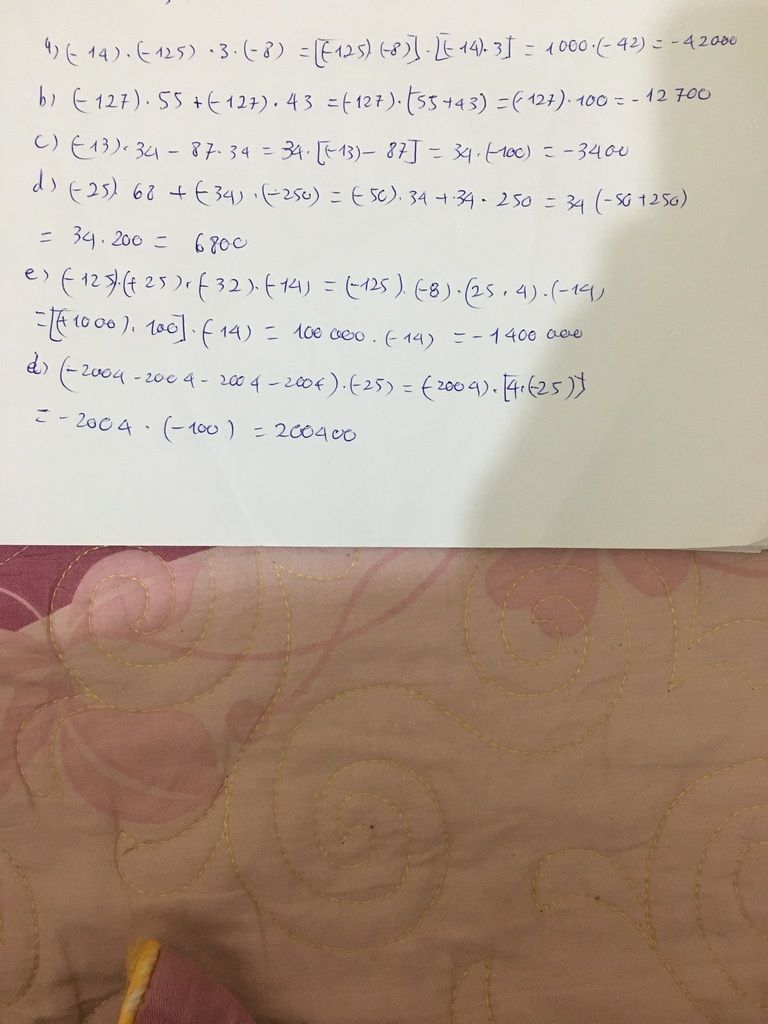 a) (-14).(-125).3.(-8) = [(-125)(-8)].[(-14).3] = 1000.(-42) = -42000
b) (-127).55 + (-127).43 = (-127).(55+43) = (-127).100 = -12700
c) (-13).34 - 87.34 = 34.[(-13) - 87] = 34.(-100) = -3400
d) (-25) 68 + (-34).(-250) = (-50).34 + 34.250 = 34 (-50+250)
= 34.200 = 6800
e) (-125).(+25).(-32).(-14) = (-125).(-8).(25.4).(-14)
= [(+1000).100].(-14) = 100 000.(-14) = -1400 000
d) (-2004 -2004 -2004 -2004).(-25) = (-2004).[4.(-25)]
= -2004.(-100) = 200400